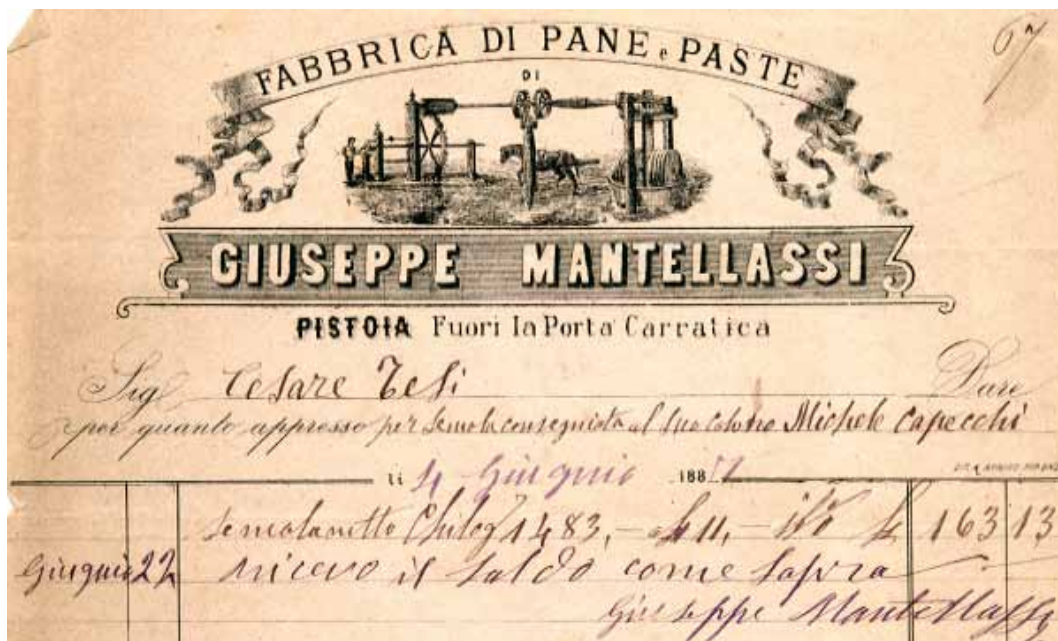 FABBRICA DI PANE e PASTE
DI
GIUSEPPE MANTELLASSI
PISTOIA Fuori la Porta Carratica
Sig Cesare Tesi Dare
per quanto appresso per semola consegniata al suo colono Michele Capecchi
li 4 Giugnio 188
semolanetto Chilog 1483, — a £ 11, — £ 163 13
Giugnio 22 ricevo il saldo come sopra
Giuseppe Mantellassi